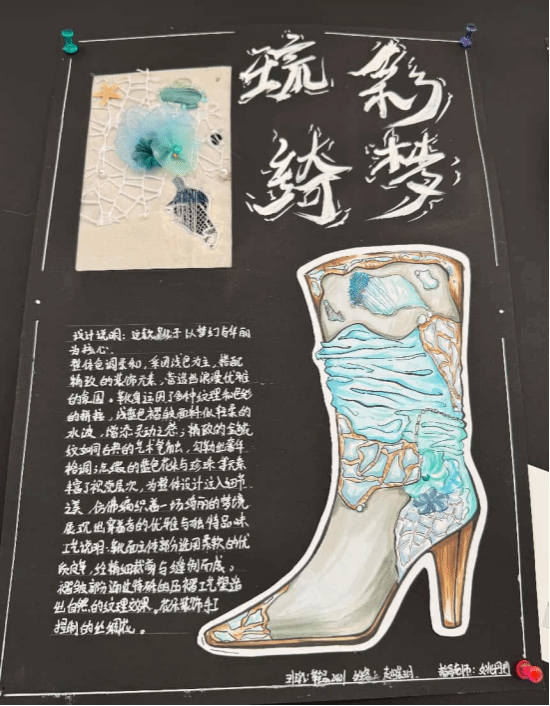 琉彩
绮梦
设计说明：这款靴子以梦幻与华丽
为核心，
整体色调柔和，采用浅色为主，搭配
精致的装饰元素，营造出浪漫优雅
的氛围。靴身运用了各种纹理和色彩
的拼接，浅蓝色褶皱面料似轻柔的
水波，增添灵动之感；精致的金属
纹如同古典的艺术笔触，勾勒出奢华
格调；点缀的蓝色花朵与珍珠等元素
丰富了视觉层次，为整体设计注入细节
之美，仿佛编织着一场绮丽的梦境
展现出穿着者的优雅与独特品味
工艺说明：靴面主体部分选用柔软的优
质皮革，经精细裁剪与缝制而成。
褶皱部分通过特殊的压褶工艺塑造
出自然的纹理效果。花朵装饰手工
制的丝绸花。
指导老师：